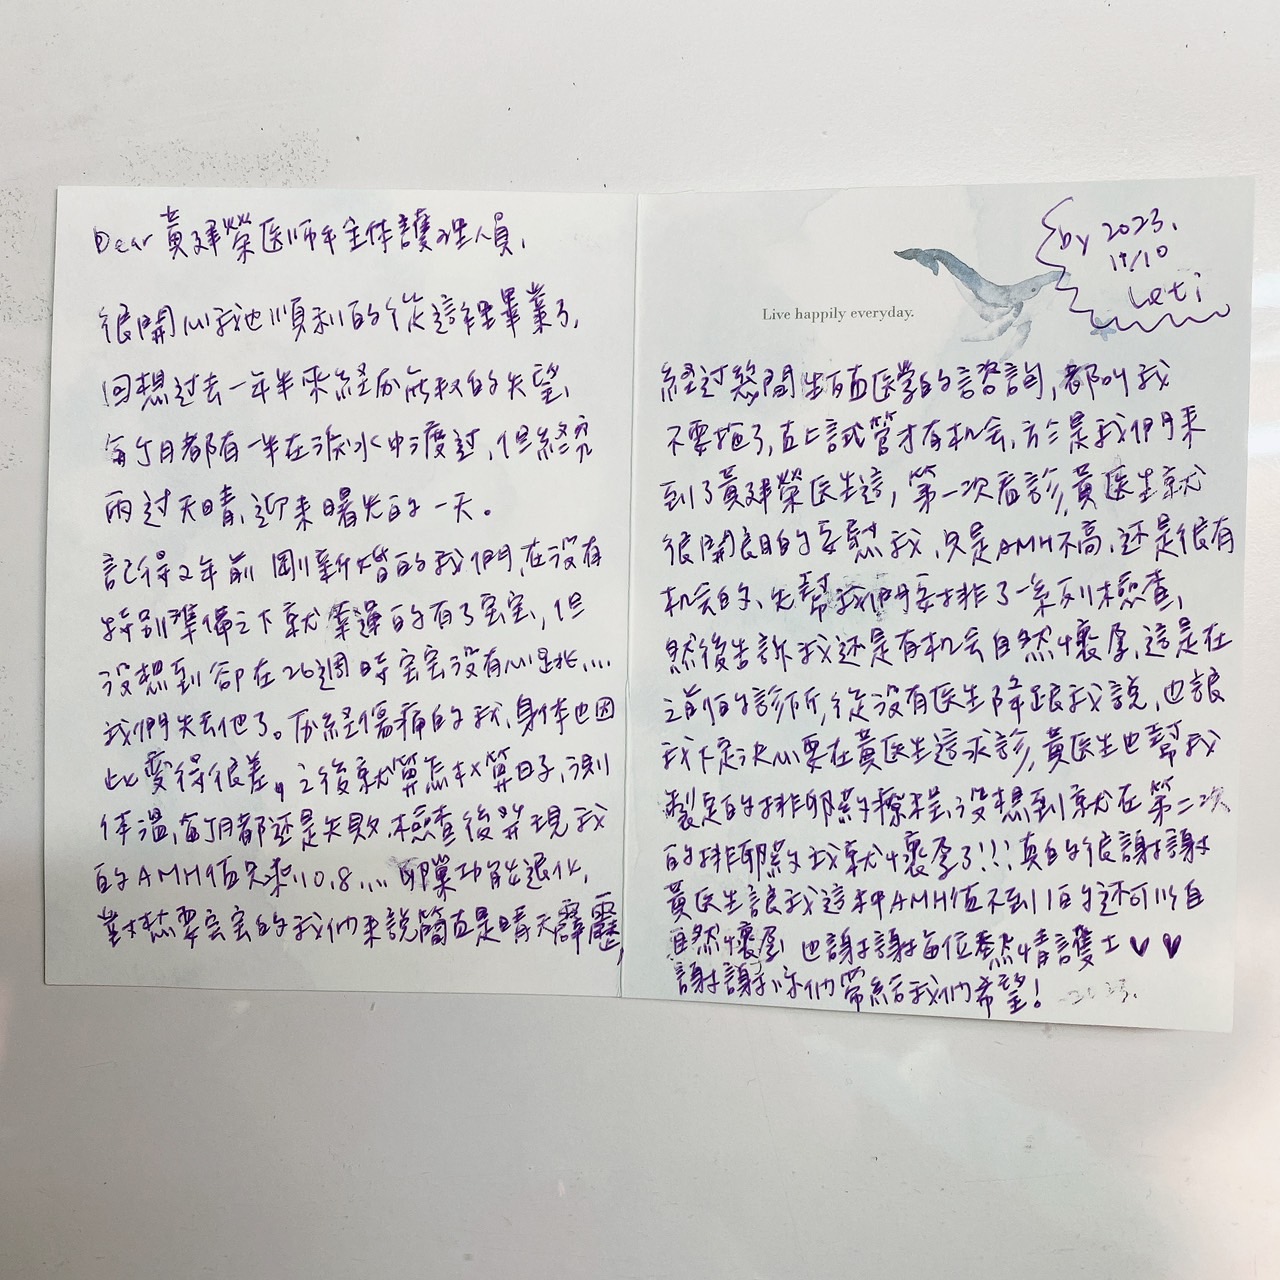 Dear 黃建榮医師和全体護理人員,
很開心我也順利的從這裡畢業了,
回想过去一年半來経历無数的失望,
每个月都有一半在淚水中渡过,但終究
雨过天晴,迎來曙光的一天。
記得2年前剛新婚的我們,在没有
特別準備之下就幸運的有了宝宝,但
没想到卻在26週時宝宝没有心跳....
我們失去他了。历經傷痛的我,身体也因
此變得很差,之後就算怎扒算日子,測
体溫,每月都还是失敗,檢查後発現我
的AMH值只剩0.8....卵巢功能退化,
對想要宝宝的我們來說簡直是晴天霹靂,
by 2023.
11/10
Leti
Live happily everyday.
経过幾間生殖医学的諮詢,都叫我
不要拖了,直上試管才有机会,於是我們来
到了黃建榮医生這,第一次看診,黃医生就
很開朗的安慰我,只是AMH不高,还是很有
机会的,先幫我們安排了一系列檢查,
然後告訴我还是有机会自然懷孕,這是在
之前的診所,從没有医生降跟我説,也讓
我下定決心要在黃医生這求診,黃医生也幫我
製定的排卵藥療程,没想到就在第二次
的排卵藥我就懷孕了!!!真的很謝謝
黃医生讓我這種AMH值不到1的还可以自
自然懷孕,也謝謝每位熱情護士♥♥
謝謝你們帶給我們希望!
2023.